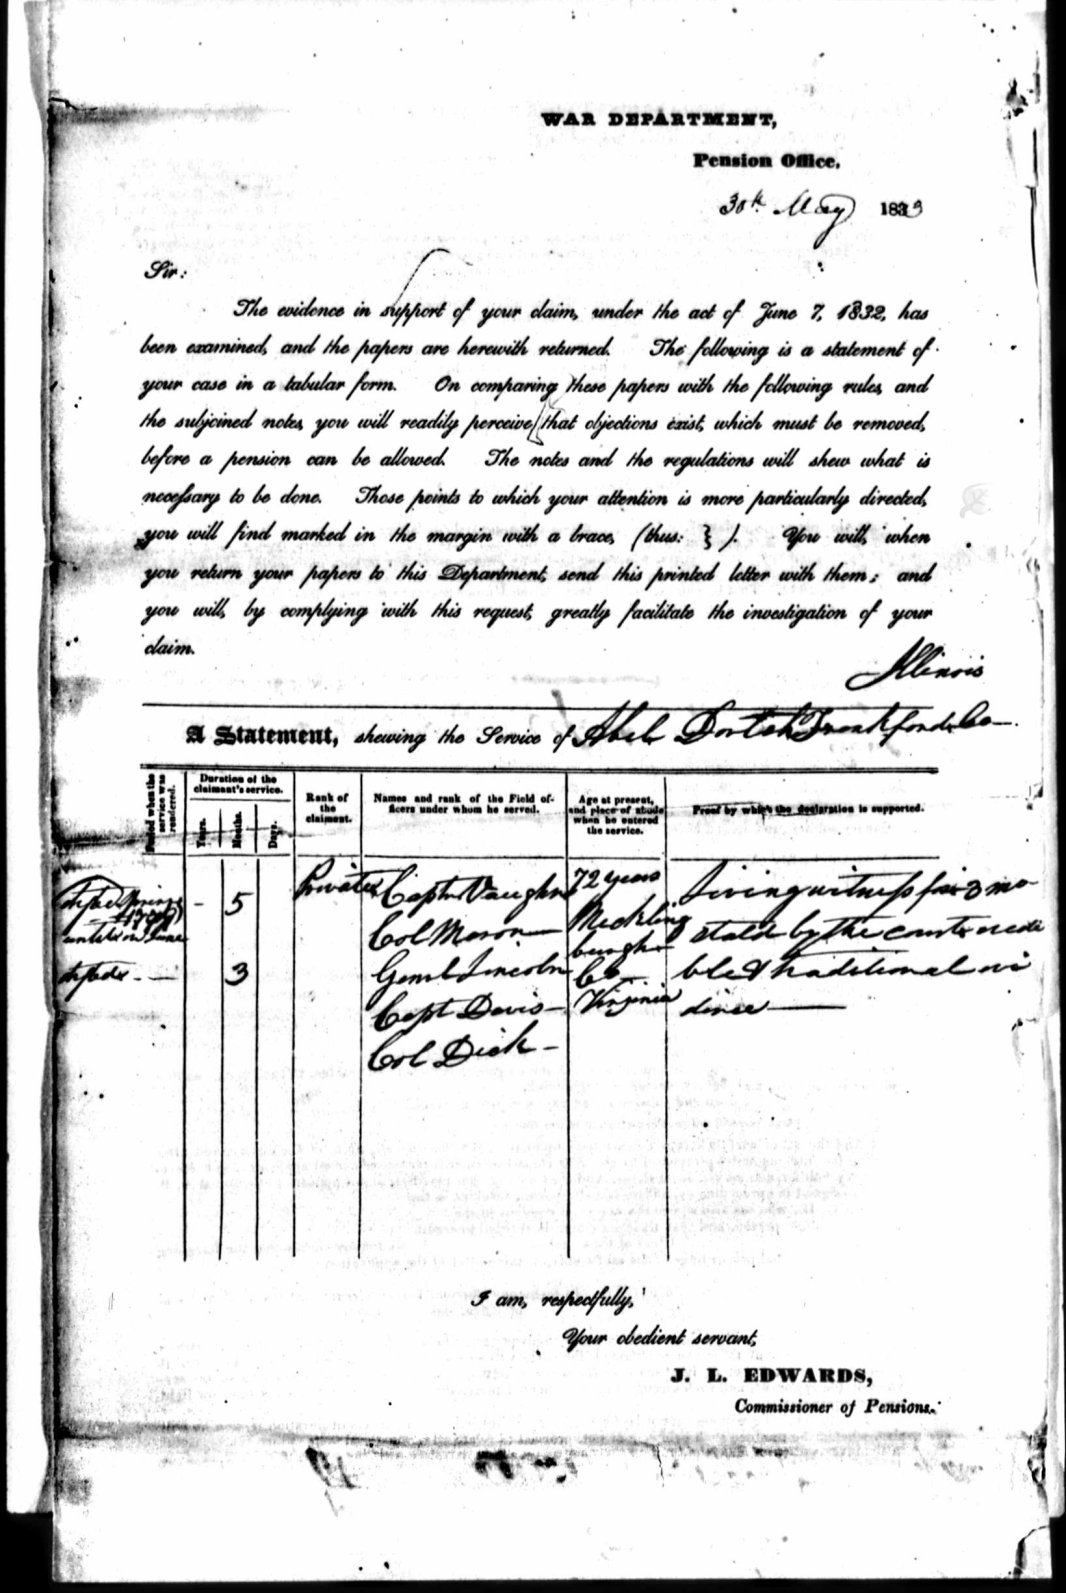 WAR DEPARTMENT,
Pension Office.
30th May 1833
Sir:
The evidence in support of your claim, under the act of June 7, 1832, has
been examined, and the papers are herewith returned. The following is a statement of
your case in a tabular form. On comparing these papers with the following rules, and
the subjoined notes, you will readily perceive that objections exist, which must be removed,
before a pension can be allowed. The notes and the regulations will shew what is
necessary to be done. Those points to which your attention is more particularly directed,
you will find marked in the margin with a brace, (thus: } ). You will, when
you return your papers to this Department, send this printed letter with them; and
you will, by complying with this request, greatly facilitate the investigation of your
claim.
Illinois
A Statement, shewing the Service of Abel Dortch Frankford Co
Period when the service was rendered.
Duration of the claimant's service.
Years.
Months.
Days.
Rank of the claimant.
Names and rank of the Field officers under whom he served.
Age at present, and place of abode when he entered the service.
Proof by which the declaration is supported.
Spring
until in June
- 5
3
Private
Capt Vaughn
Col Mason
Genl Lincoln
Capt Davis
Col Dick
72 years
Mecklin
burgh
Co
Virginia
Living witness for 3 mo
stated by the court credi
ble & traditional evi
dence
I am, respectfully,
Your obedient servant,
J. L. EDWARDS,
Commissioner of Pensions.